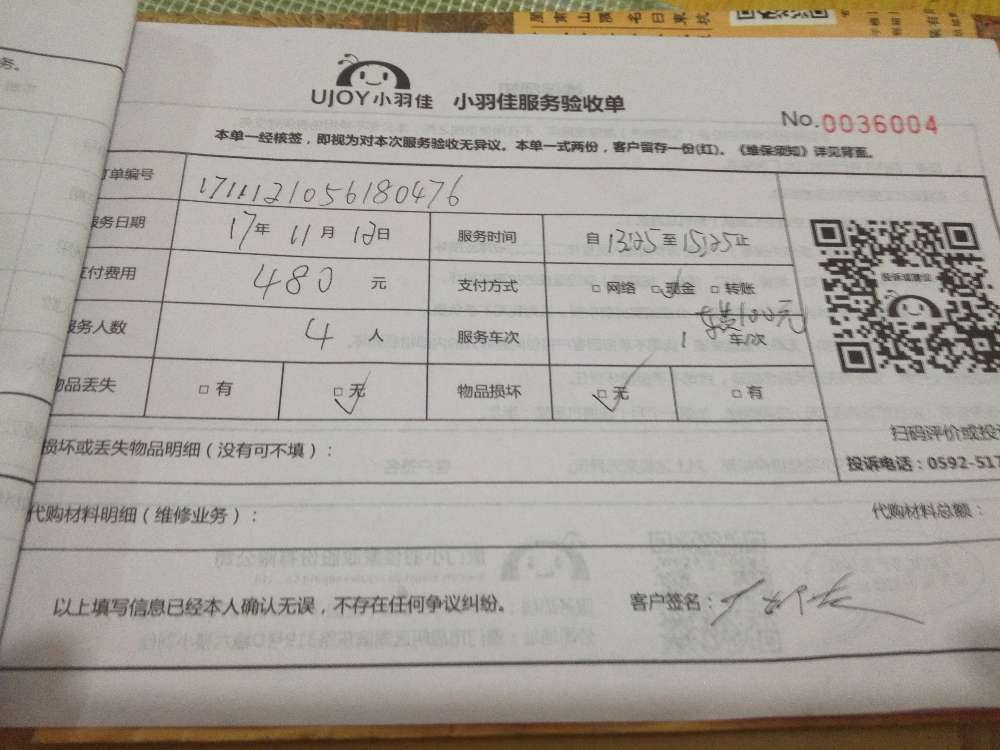 UJOY小羽佳 小羽佳服务验收单
No.0036004
本单一经核签，即视为对本次服务验收无异议。本单一式两份，客户留存一份(红)。《维保须知》详见背面。
务。
订单编号 1711121056180476
服务日期 17年 11月 12日 服务时间 自 13:25 至 15:25 止
支付费用 480 元 支付方式 □ 网络 □ 现金 □ 转账
100元
服务人数 4 人 服务车次 1 车/次
物品丢失 □ 有 □ 无 物品损坏 □ 无 □ 有
投诉或建议
扫码评价或投
投诉电话：0592-517
损坏或丢失物品明细（没有可不填）：
代购材料明细（维修业务）： 代购材料总额：
以上填写信息已经本人确认无误，不存在任何争议纠纷。 客户签名：